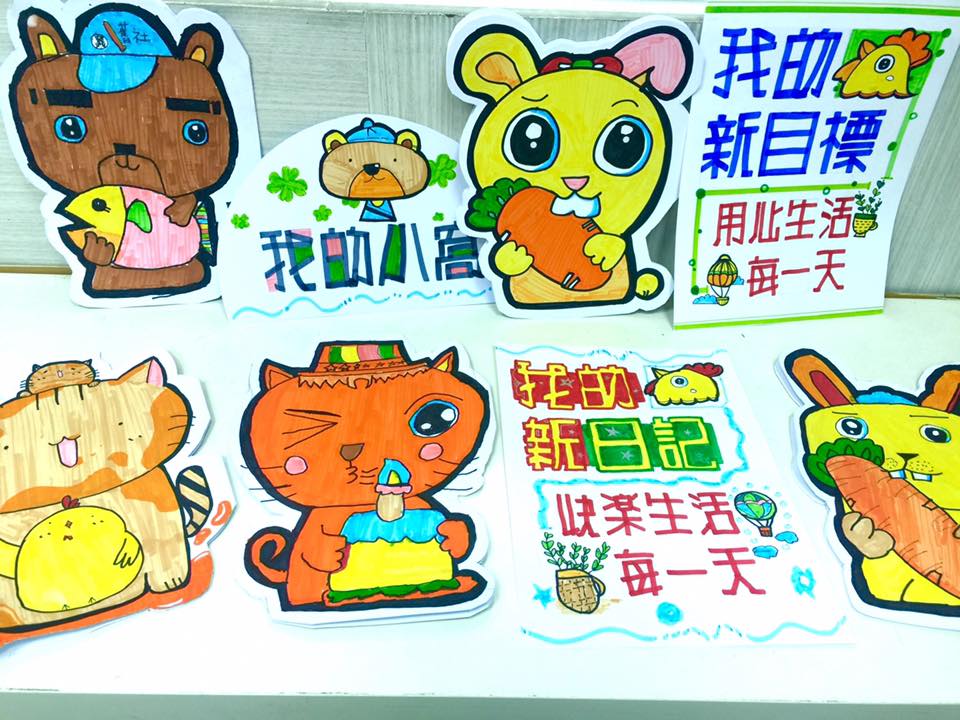 我的小窩
我的
新目標
用心生活
每一天
我的
新日記
快楽生活
每一天